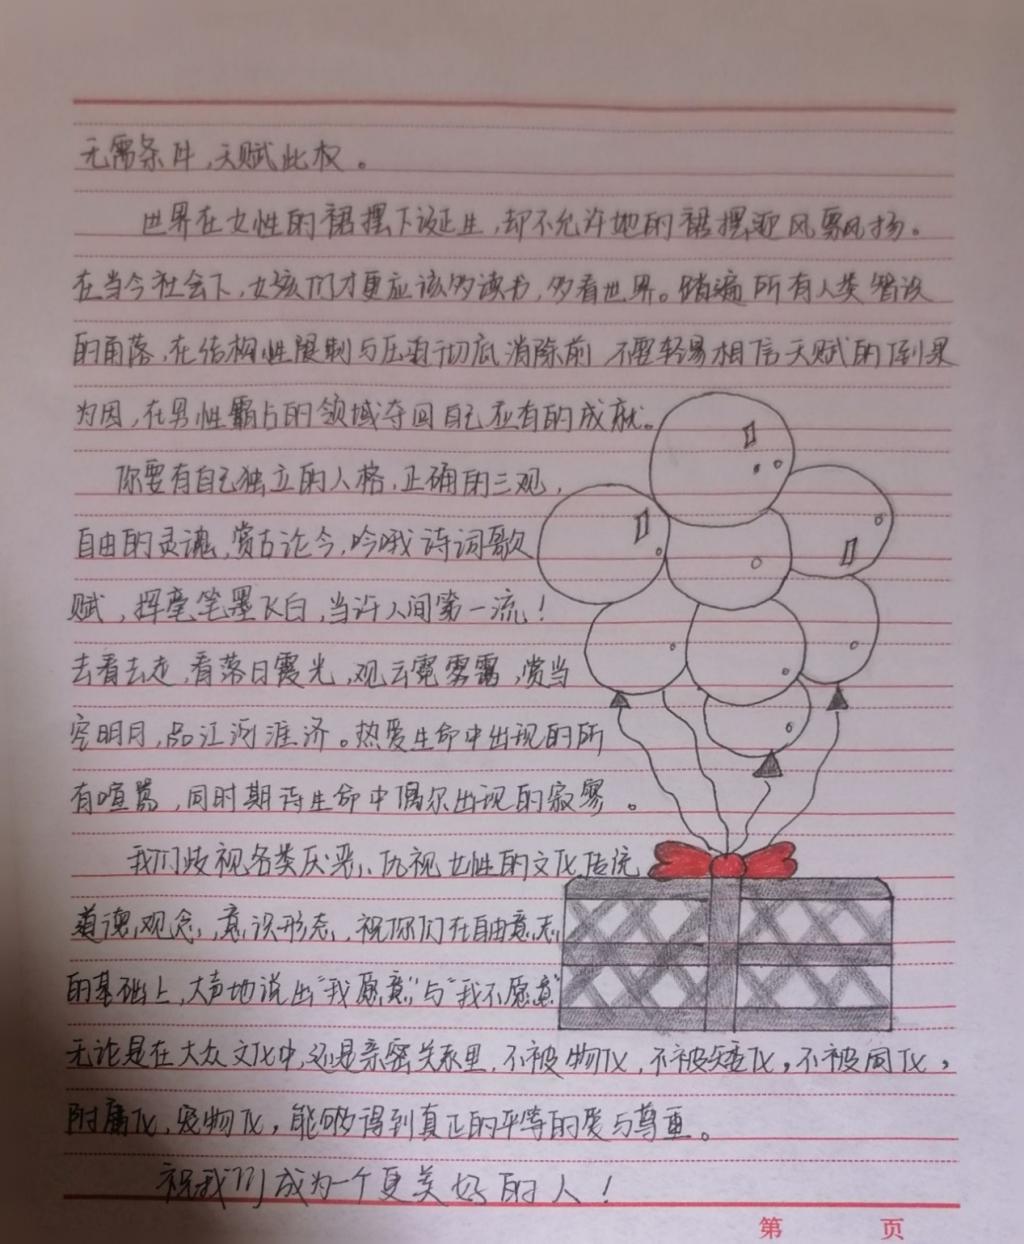 无需条件，天赋此权。
世界在女性的裙摆下诞生，却不允许她的裙摆迎风飘扬。
在当今社会下，女孩们才更应该多读书，多看世界。踏遍所有人类智设
的角落，在结构性限制与压迫彻底消除前，不要轻易相信天赋的倒果
为因，在男性霸占的领域夺回自己应有的成就。
你要有自己独立的人格，正确的三观，
自由的灵魂，赏古论今，吟哦诗词歌
赋，挥毫笔墨飞白，当许人间第一流！
去看去走，看落日霞光，观云霓雾霭，赏当
空明月，品江河淮济。热爱生命中出现的所
有喧嚣，同时期待生命中偶尔出现的寂寥。
我们歧视各类厌恶、仇视女性的文化传统
道德观念，意识形态，祝你们在自由意志
的基础上，大声地说出“我愿意”与“我不愿意”
无论是在大众文化中，还是亲密关系里，不被物化，不被矮化，不被同化，
附庸化，宠物化，能够得到真正的平等的爱与尊重。
祝我们成为一个更美好的人！
第 页